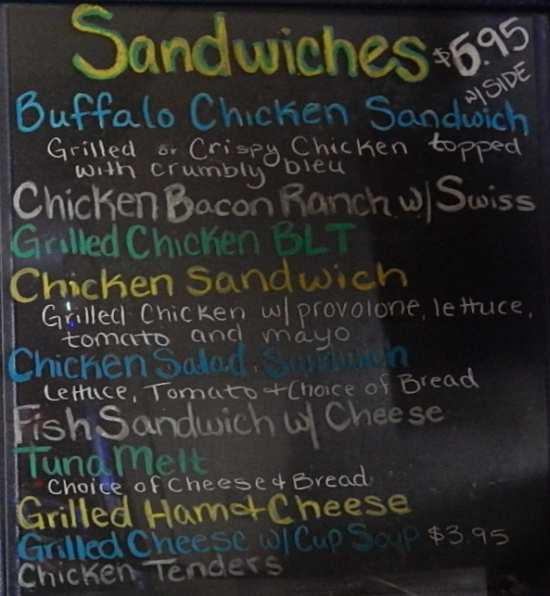 Sandwiches $6.95
w/ SIDE
Buffalo Chicken Sandwich
Grilled or Crispy Chicken topped
with crumbly bleu
Chicken Bacon Ranch w/ Swiss
Grilled Chicken BLT
Chicken Sandwich
Grilled Chicken w/ provolone, lettuce,
tomato and mayo
Chicken Salad Sandwich
Lettuce, Tomato + Choice of Bread
Fish Sandwich w/ Cheese
Tuna Melt
Choice of Cheese & Bread
Grilled Ham & Cheese
Grilled Cheese w/ Cup Soup $3.95
Chicken Tenders